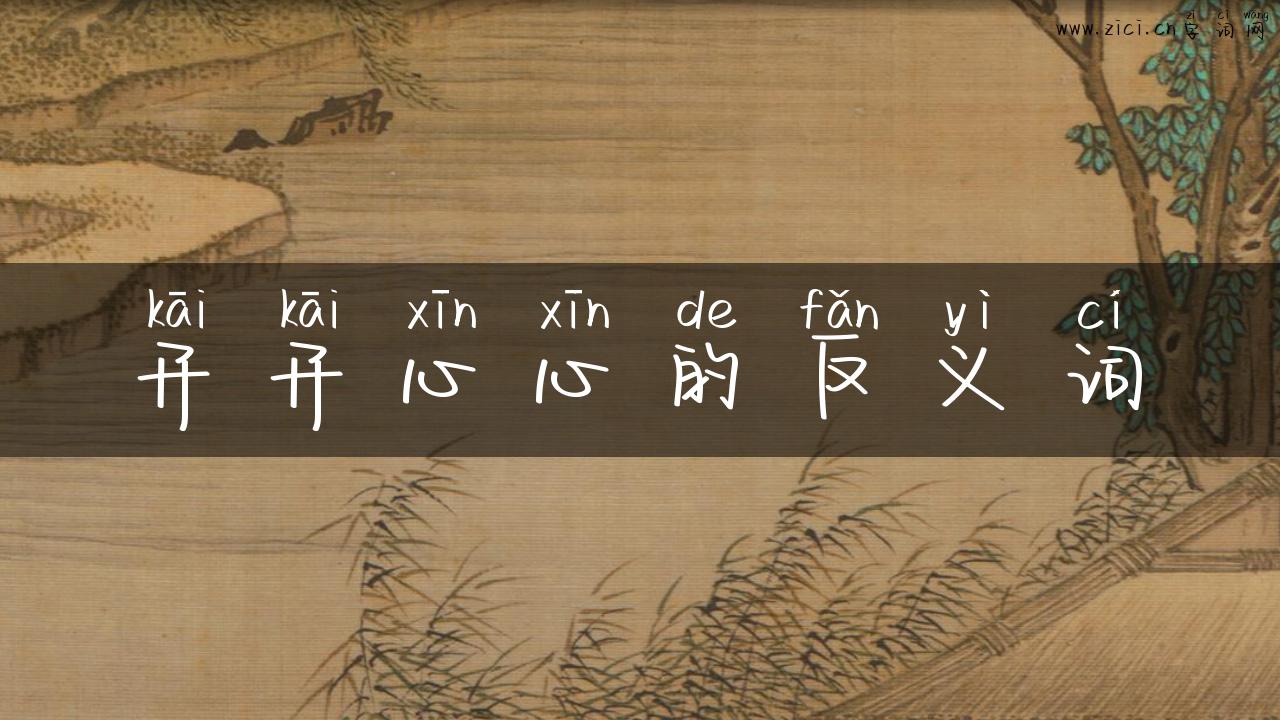 zì cí wǎng
www.zici.cn字词网
kāi kāi xīn xīn de fǎn yì cí
开开心心的反义词